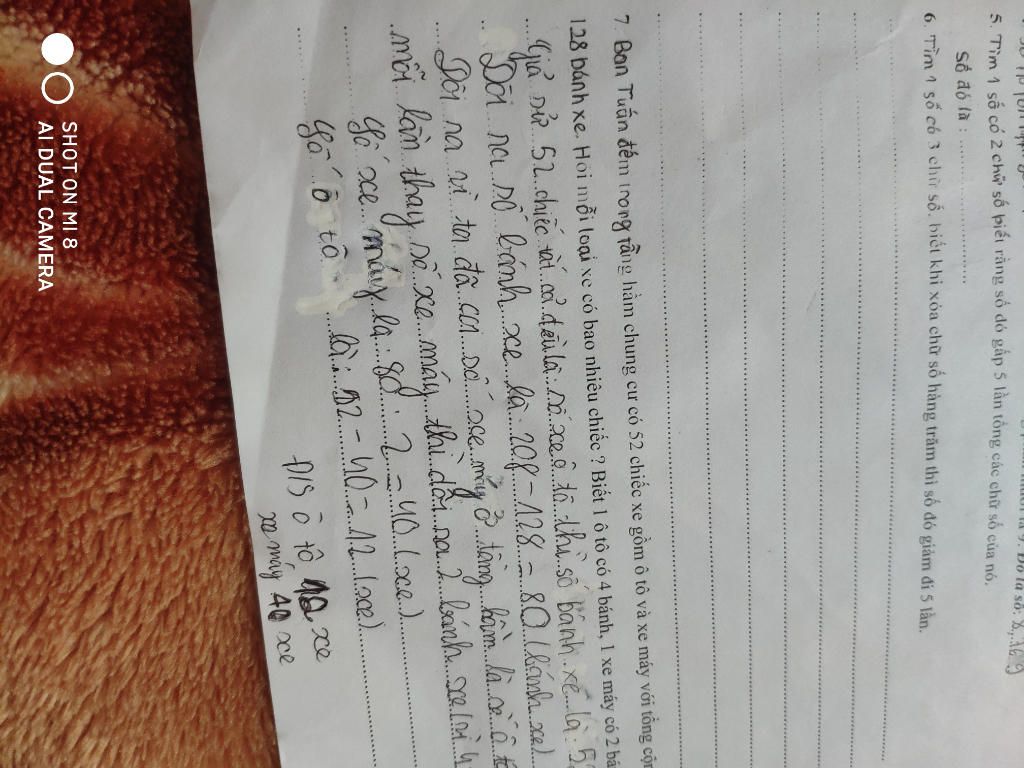 5. Tìm 1 số có 2 chữ số biết rằng số đó gấp 5 lần tổng các chữ số của nó.
Số đó là : ...................
6. Tìm 1 số có 3 chữ số, biết khi xóa chữ số hàng trăm thì số đó giảm đi 5 lần.
7 Bạn Tuấn đếm trong tầng hầm chung cư có 52 chiếc xe gồm ô tô và xe máy với tổng cộng
128 bánh xe. Hỏi mỗi loại xe có bao nhiêu chiếc ? Biết 1 ô tô có 4 bánh, 1 xe máy có 2 bá
Giả sử 52 chiếc tất cả đều là số xe ô tô thì số bánh xe là
Dôi ra số bánh xe là 208 - 128 = 80 (bánh xe)
Dôi ra vì ta đã coi số xe máy ở tầng hầm là xe ô tô
mỗi lần thay số xe máy thì dôi ra 2 bánh xe
Số xe máy là : 80 : 2 = 40 (xe)
Số ô tô là : 52 - 40 = 12 (xe)
Đ/S ô tô 12 xe
xe máy 40 xe
SHOT ON MI 8
AI DUAL CAMERA